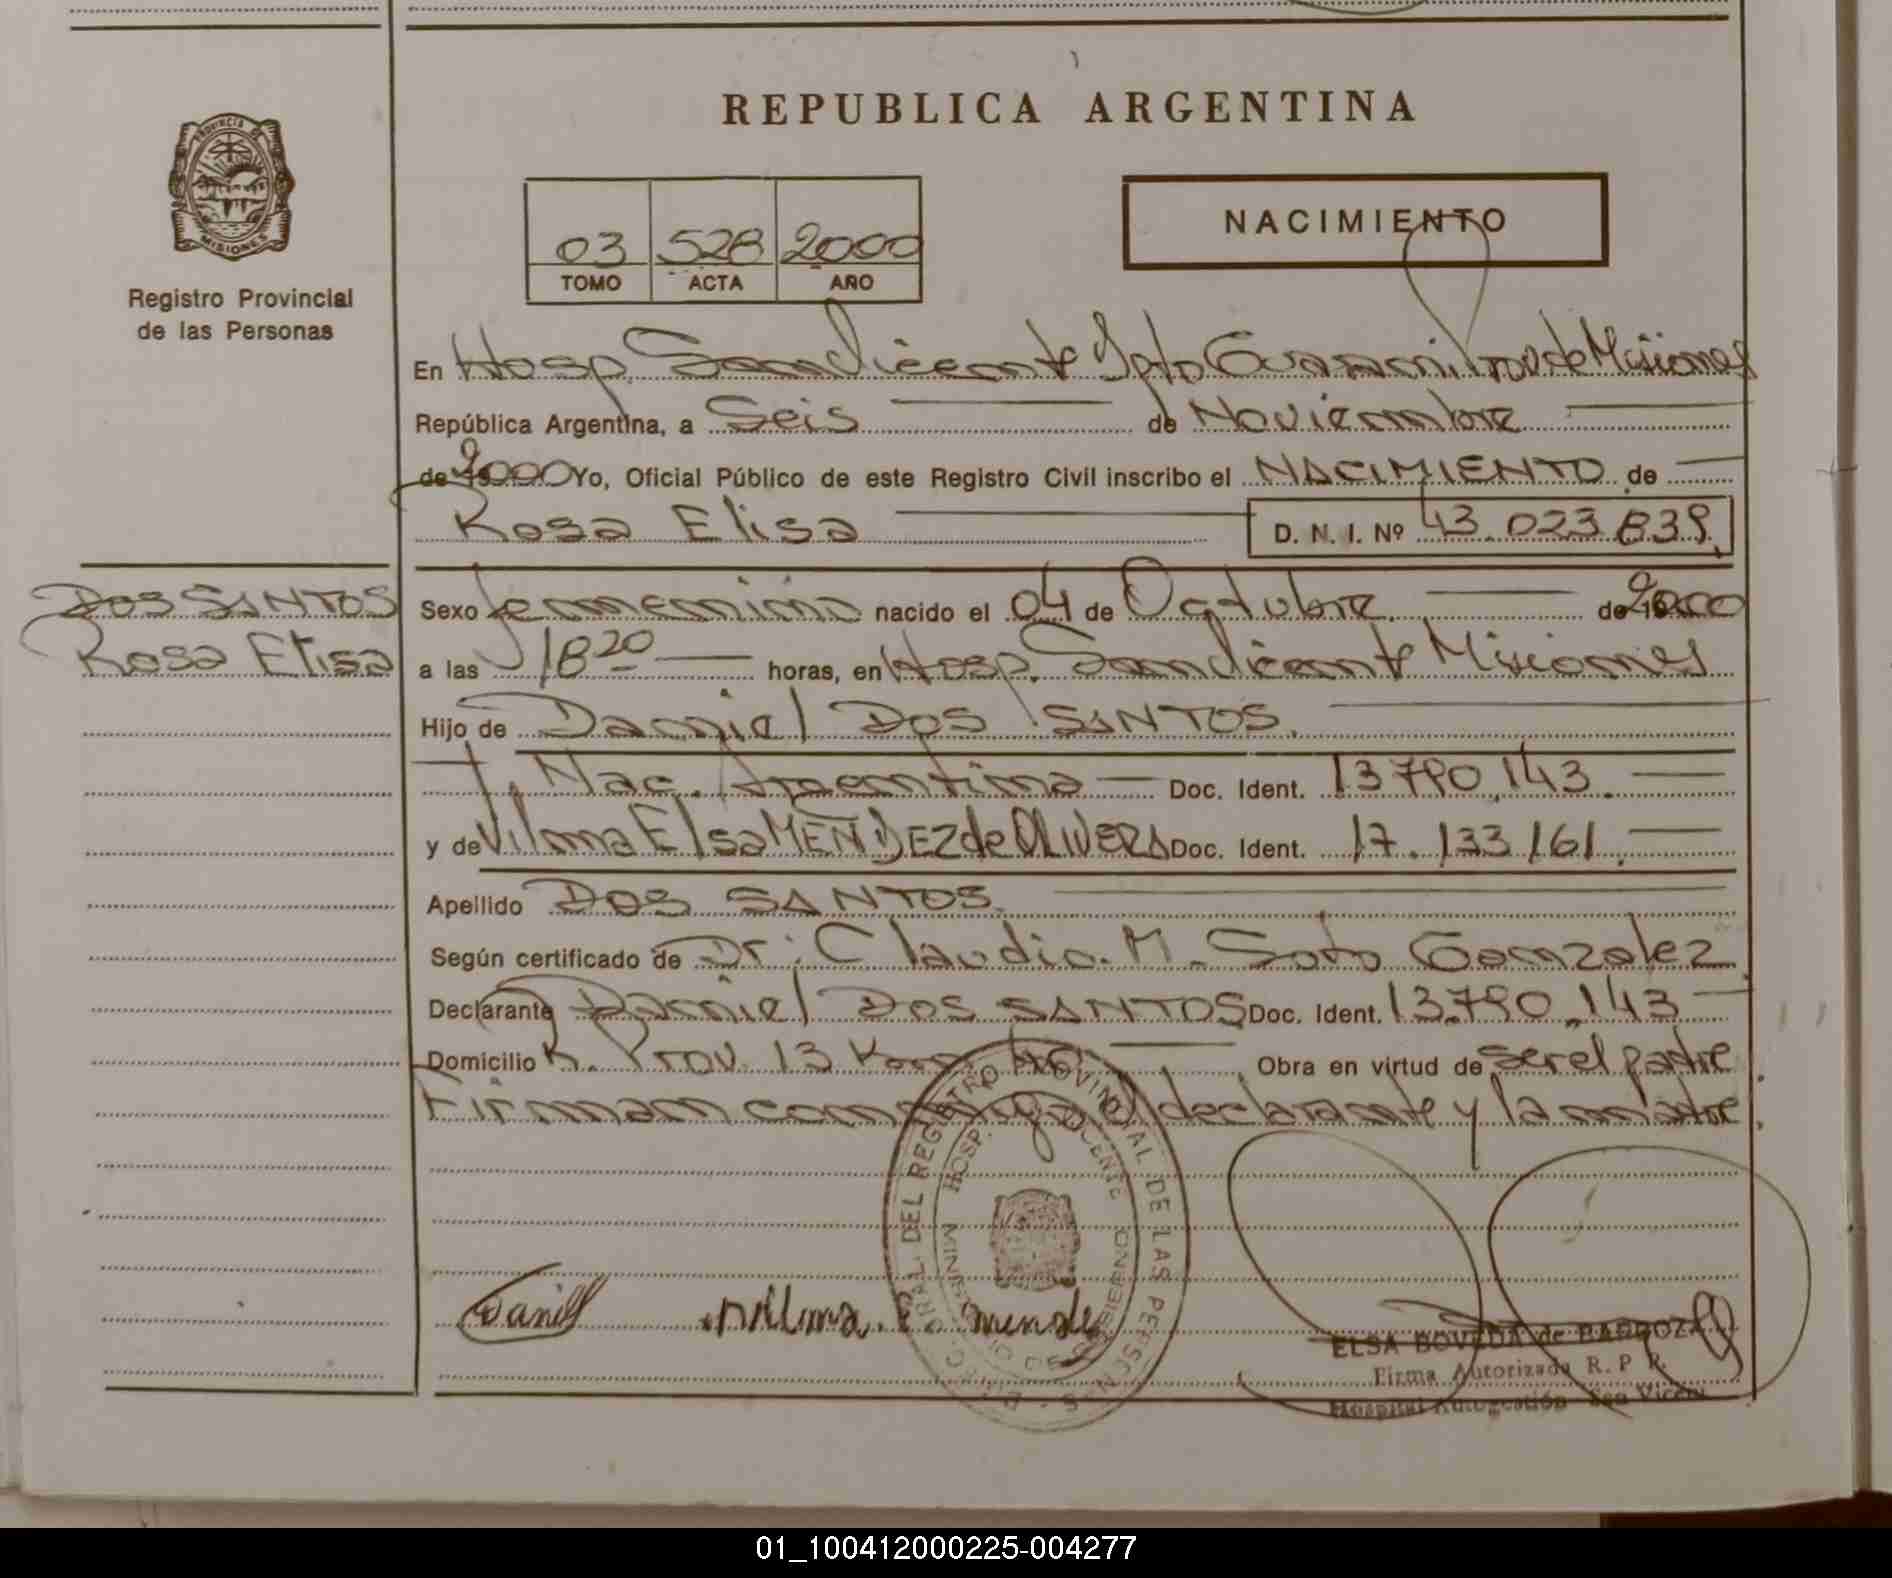 REPUBLICA ARGENTINA
PROVINCIA DE
MISIONES
Registro Provincial
de las Personas
03 528 2000
TOMO ACTA AÑO
NACIMIENTO
En Hosp. San Vicente Dpto Guarani, Prov de Misiones
República Argentina, a Seis de Noviembre
de 2000 Yo, Oficial Público de este Registro Civil inscribo el NACIMIENTO de
Rosa Elisa D. N. I. Nº 43.023.839.
DOS SANTOS
Rosa Elisa
Sexo femenino nacido el 04 de Octubre de 2000
a las 18 20 horas, en Hosp. San Vicente Misiones
Hijo de Daniel DOS SANTOS.
Nac. Argentina Doc. Ident. 13.790.143.
y de Vilma Elsa MENDEZ de OLIVERA Doc. Ident. 17.133.161.
Apellido DOS SANTOS.
Según certificado de Dr: Claudio. M. Soto Gonzalez.
Declarante Daniel DOS SANTOS Doc. Ident. 13.790.143
Domicilio R. Prov. 13 Km 40 Obra en virtud de ser el padre
Firman conmigo el declarante y la madre.
DIREC. GRAL. DEL REGISTRO PROVINCIAL DE LAS PERSONAS
HOSP. VICENTE
MINISTERIO DE GOBIERNO
ELSA BOVEDA de BARBOZA
Firma Autorizada R. P. P.
Hospital Autogestión San Vicente
01_100412000225-004277